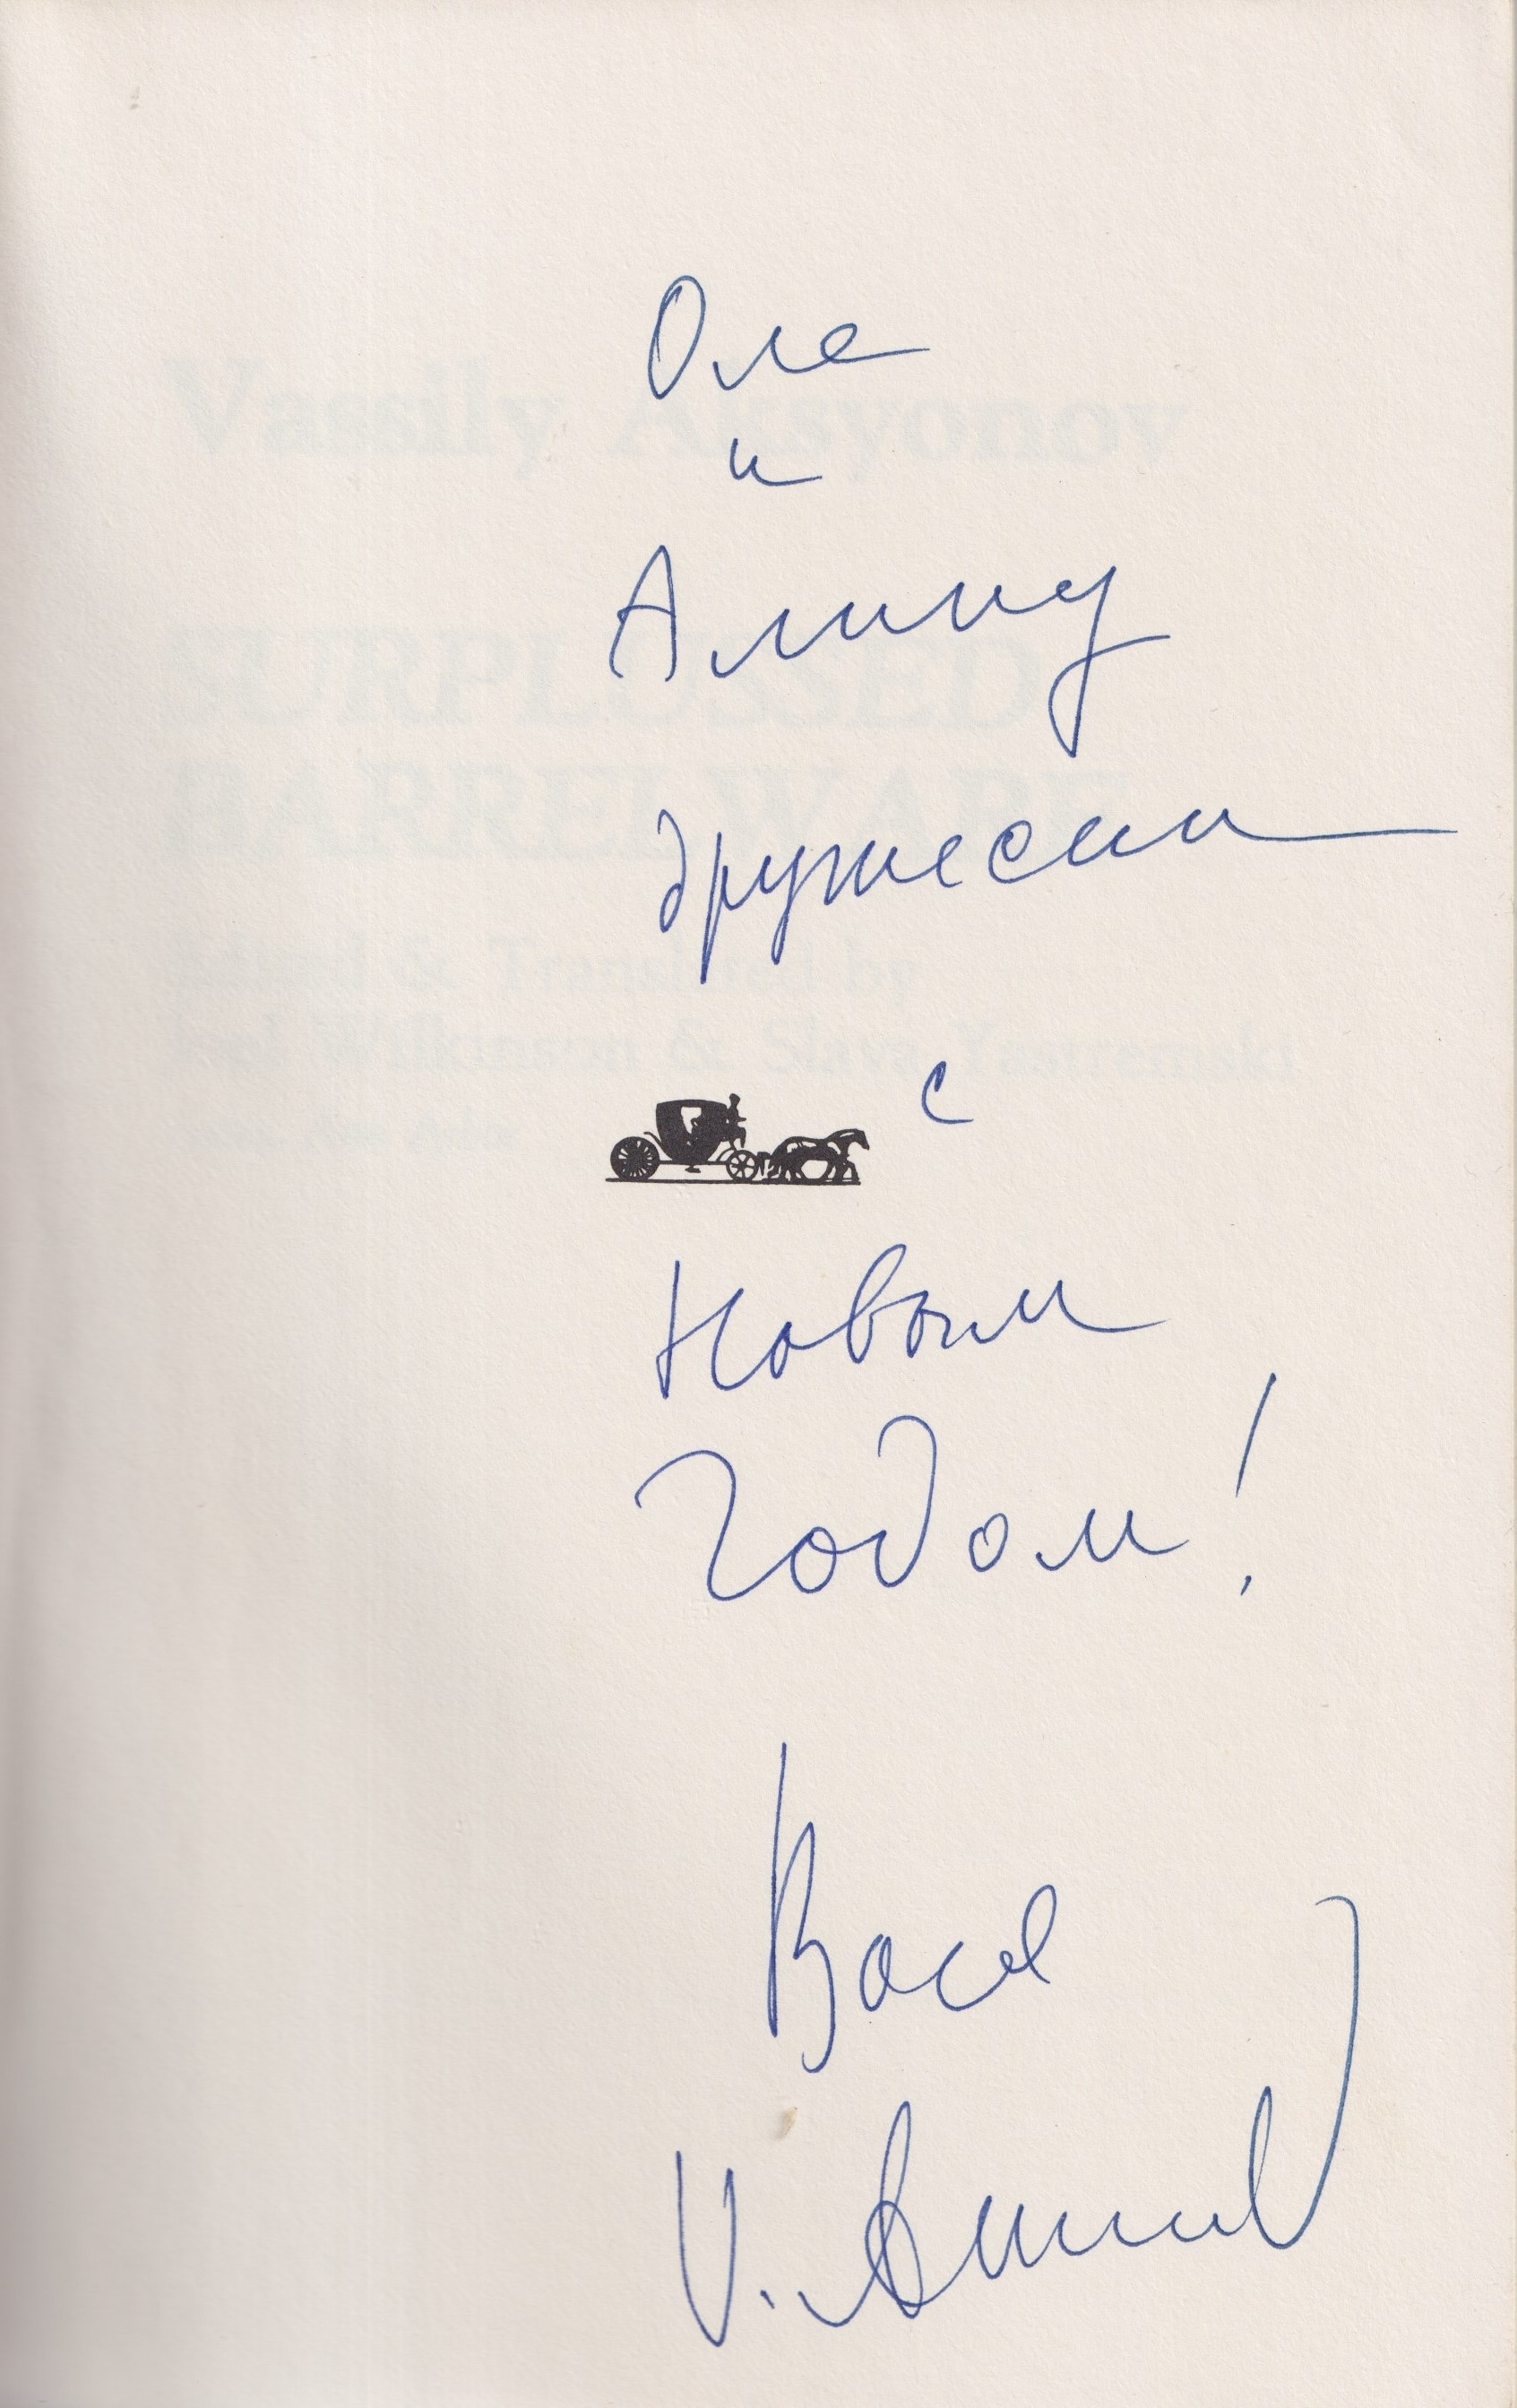 Оле
Vassily Aksyonov
и
Алику
SURPLUSSED
BARRELWARE
дружески
Edited & Translated by
Joel Wilkinson & Slava Yastremski
с
Новым
Годом!
Вася